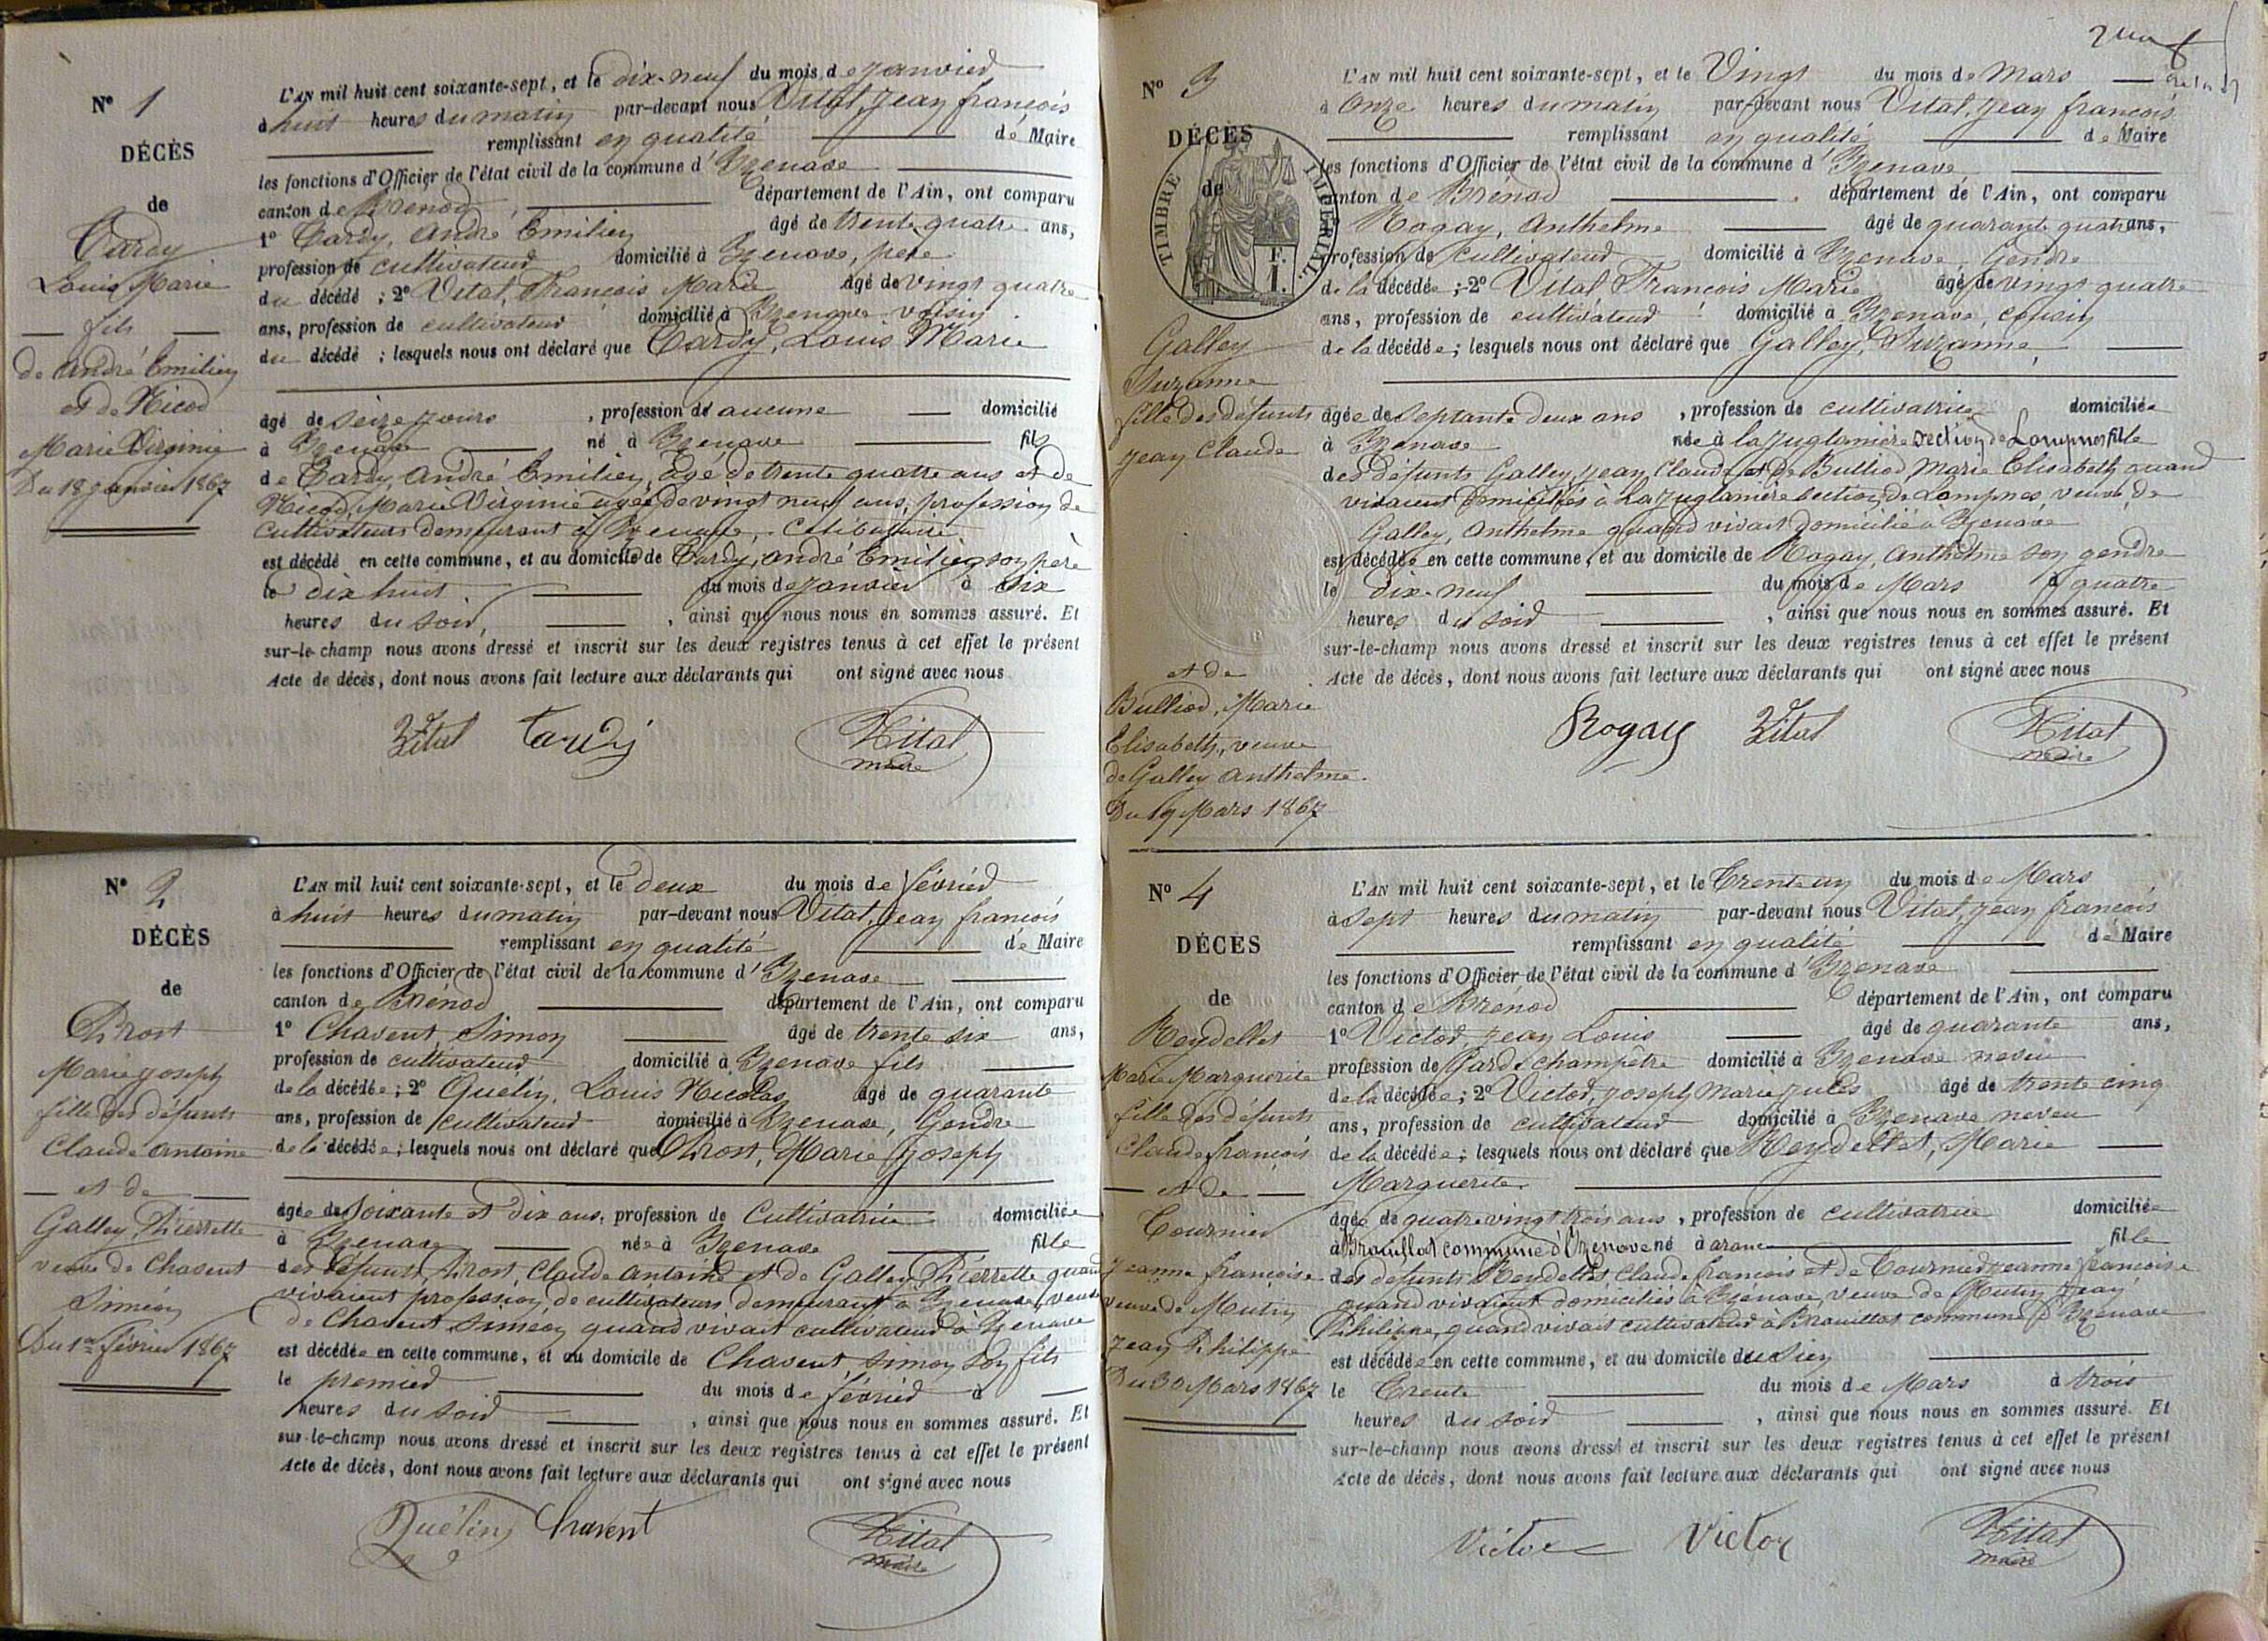 N° 1
DÉCÈS
de
Tardy
Louis Marie
fils
de André Emilien
et de Nicod
Marie Virginie
Du 18 Janvier 1867
L'AN mil huit cent soixante-sept, et le dix-neuf du mois de Janvier
à huit heures du matin par-devant nous Vital, Jean françois
remplissant en qualité de Maire
les fonctions d'Officier de l'état civil de la commune d'Izenave
canton de Brénod département de l'Ain, ont comparu
1° Tardy, André Emilien âgé de trente quatre ans,
profession de cultivateur domicilié à Izenave, père
du décédé ; 2° Vital, François Marie âgé de vingt quatre
ans, profession de cultivateur domicilié à Izenave voisin
du décédé ; lesquels nous ont déclaré que Tardy, Louis Marie
âgé de seize jours , profession de aucune domicilié
à Izenave né à Izenave fils
de Tardy, André Emilien, âgé de trente quatre ans et de
Nicod, Marie Virginie agée de vingt neuf ans, profession de
cultivateurs demeurant à Izenave, Célibataire
est décédé en cette commune, et au domicile de Tardy, André Emilien son père
le dix huit du mois de Janvier à six
heures du soir, , ainsi que nous nous en sommes assuré. Et
sur-le-champ nous avons dressé et inscrit sur les deux registres tenus à cet effet le présent
Acte de décès, dont nous avons fait lecture aux déclarants qui ont signé avec nous
Vital Tardy Vital
maire
N° 2
DÉCÈS
de
Prost
Marie Joseph
fille des défunts
Claude Antoine
et de
Galley, Pierrette
veuve de Chavent
Siméon
Du 1er février 1867
L'AN mil huit cent soixante-sept, et le deux du mois de février
à huit heures du matin par-devant nous Vital, Jean françois
remplissant en qualité de Maire
les fonctions d'Officier de l'état civil de la commune d'Izenave
canton de Brénod département de l'Ain, ont comparu
1° Chavent, Simon âgé de trente six ans,
profession de cultivateur domicilié à Izenave fils
de la décédée ; 2° Quélin, Louis Nicolas âgé de quarante
ans, profession de cultivateur domicilié à Izenave, Gendre
de la décédée ; lesquels nous ont déclaré que Prost, Marie Joseph
âgée de soixante et dix ans, profession de Cultivatrice domiciliée
à Izenave née à Izenave fille
des défunts Prost, Claude Antoine et de Galley, Pierrette quand
vivaient profession de cultivateurs demeurant à Izenave, veuve
de Chavent Siméon quand vivait cultivateur à Izenave
est décédée en cette commune, et au domicile de Chavent Simon son fils
le premier du mois de février à
heures du soir , ainsi que nous nous en sommes assuré. Et
sur-le-champ nous avons dressé et inscrit sur les deux registres tenus à cet effet le présent
Acte de décès, dont nous avons fait lecture aux déclarants qui ont signé avec nous
Quélin Chavent Vital
maire
N° 3
DÉCÈS
de
TIMBRE IMPÉRIAL
F.
1.
Galley
Suzanne
fille des défunts
Jean Claude
et de
Bulliod, Marie
Elisabeth, veuve
de Galley Anthelme.
Du 19 Mars 1867
L'AN mil huit cent soixante-sept, et le Vingt du mois de Mars
à Onze heures du matin par-devant nous Vital, Jean françois
remplissant en qualité de Maire
les fonctions d'Officier de l'état civil de la commune d'Izenave
canton de Brénod département de l'Ain, ont comparu
Rogay, Anthelme âgé de quarante quatre ans,
profession de cultivateur domicilié à Izenave, Gendre
de la décédée ; 2° Vital François Marie âgé de vingt quatre
ans, profession de cultivateur domicilié à Izenave, cousin
de la décédée ; lesquels nous ont déclaré que Galley, Suzanne,
âgée de septante deux ans , profession de cultivatrice domiciliée
à Izenave née à la Juglanière section de Lompnes fille
des défunts Galley, Jean Claude et de Bulliod, Marie Elisabeth, quand
vivaient domiciliés à La Juglanière section de Lompnes veuve de
Galley, Anthelme quand vivait domicilié à Izenave
est décédée en cette commune, et au domicile de Rogay, Anthelme son gendre
le dix-neuf du mois de Mars à quatre
heures du soir , ainsi que nous nous en sommes assuré. Et
sur-le-champ nous avons dressé et inscrit sur les deux registres tenus à cet effet le présent
Acte de décès, dont nous avons fait lecture aux déclarants qui ont signé avec nous
Rogay Vital Vital
maire
N° 4
DÉCÈS
de
Reydellet
Marie Marguerite
fille des défunts
Claude françois
et de
Tournier
Jeanne françoise
veuve de Mutin
Jean Philippe
Du 30 Mars 1867
L'AN mil huit cent soixante-sept, et le Trente un du mois de Mars
à sept heures du matin par-devant nous Vital, Jean françois
remplissant en qualité de Maire
les fonctions d'Officier de l'état civil de la commune d'Izenave
canton de Brénod département de l'Ain, ont comparu
1° Victor, Jean Louis âgé de quarante ans,
profession de Garde champêtre domicilié à Izenave neveu
de la décédée ; 2° Victor, Joseph Marie Jules âgé de trente cinq
ans, profession de cultivateur domicilié à Izenave neveu
de la décédée ; lesquels nous ont déclaré que Reydellet, Marie
Marguerite.
âgée de quatre vingt trois ans , profession de cultivatrice domiciliée
à Brouillat commune d'Izenave né à aranc fille
des défunts Reydellet Claude françois et de Tournier Jeanne françoise
quand vivaient domiciliés à Izenave, veuve de Mutin Jean
Philippe, quand vivait cultivateur à Brouillat commune d'Izenave
est décédée en cette commune, et au domicile du sien
le Trente du mois de Mars à trois
heures du soir , ainsi que nous nous en sommes assuré. Et
sur-le-champ nous avons dressé et inscrit sur les deux registres tenus à cet effet le présent
Acte de décès, dont nous avons fait lecture aux déclarants qui ont signé avec nous
Victor Victor Vital
maire